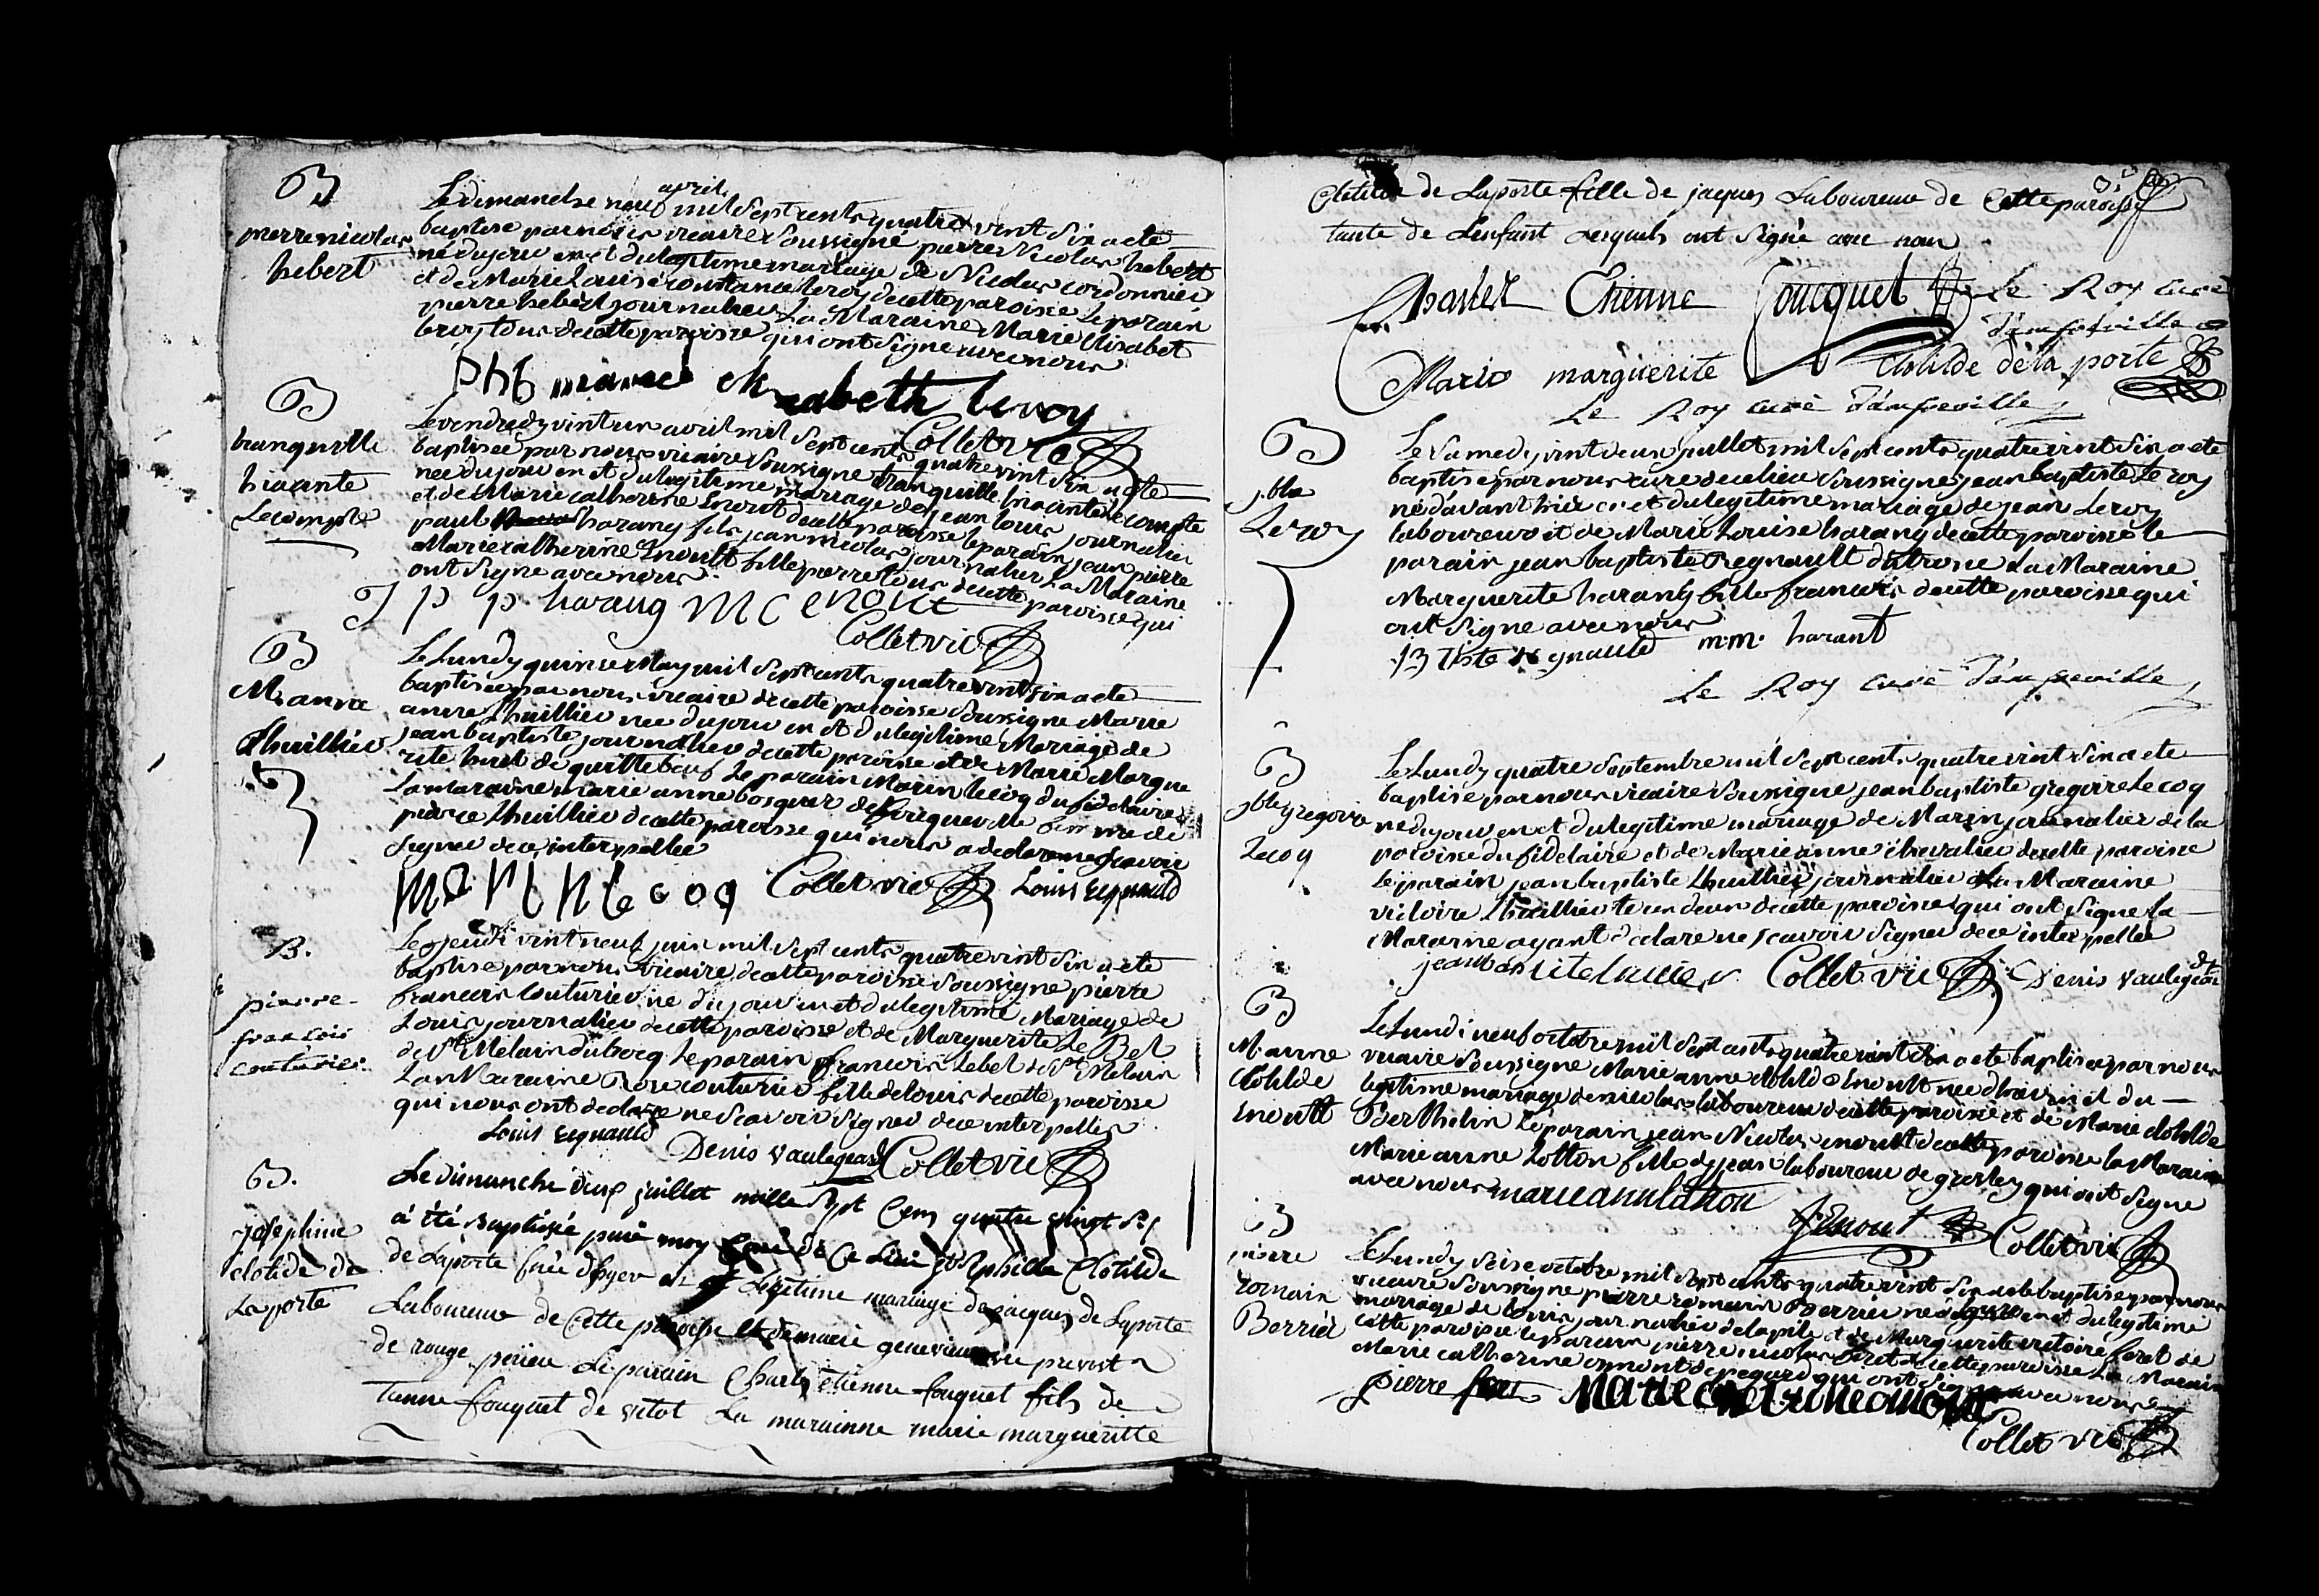 B
pierre nicolas
hebert
Le dimanche neuf avril mil sept cents quatre vint six a ete
baptise par nous vicaire soussigné pierre Nicolas hebert
né du jour en et du legitime mariage de Nicolas cordonnier
et de Marie Louise constance leroy de cette paroisse Le parain
pierre hebert journalier La Maraine Marie Elisabet
leroy tous de cette paroisse qui ont signe avec nous
PhB marie elizabeth leroy
Collet vic
B
tranquille
hiacinte
Lecompte
Le vendredy vint un avril mil sept cents quatre vint six a ete
baptisee par nous vicaire soussigne tranquille hiacinte Lecompte
nee du jour en et du legitime mariage de jean louis journalier
et de Marie catherine Enoult de cette paroisse le parain jean pierre
paul harang fils jean nicolas journalier La Maraine
Marie catherine Enoult fille pierre tous de cette paroisse qui
ont signe avec nous
J p p harang M C enoult
Collet vic
B
M anne
Lhuillier
Le Lundy quinse May mil sept cents quatre vint six a ete
baptisee par nous vicaire de cette paroisse soussigne Marie
anne Lhuillier nee du jour en et du legitime Mariage de
jean baptiste journalier de cette paroisse et de Marie Margue
rite huet de quillebeuf Le parain Marin lecoq du fidelaire
La maraine marie anne bosquer de femme de
pierre Lhuillier de cette paroisse qui nous a declaré ne scavoir
signer de ce interpellee
MARIN leCOQ Collet vic Louis Regnauld
B.
pierre-
francois
couturier.
Le jeudi vint neuf juin mil sept cents quatre vint six a ete
baptise par nous vicaire de cette paroisse soussigne pierre
francois Couturier né du jour en et du legitime Mariage de
Louis journalier de cette paroisse et de Marguerite Le Bel
de St Melain du bocq Le parain francois Lebel de St Melain
La Maraine Rose couturier fille de louis de cette paroisse
qui nous ont declare ne scavoir signer de ce interpellee
Louis Regnauld
Denis Vaulegeard Collet vic
B.
Josephine
Clotide de
Laporte
Le dimanche deux juillet mille sept Cens quatre vingt six
a été Baptisée par moy Curé de Ce Lieu josephine Clotilde
de Laporte née d'hyer et Legitime mariage de jacques de Laporte
Laboureur de Cette paroisse et de marie genevieve prevost
de rouge perieu Le parain Charles etienne fouquet fils de
tienne fouquet de vitot La marainne marie marguerite
Clotilde de Laporte fille de jaques Laboureur de Cette paroisse
tante de Lenfant Lesquels ont signé avec nous
Charles Etienne foucquet Le Roy curé
d'amfreville
Marie marguerite clotilde de la porte
Le Roy curé d'amfreville
B
jbte
Leroy
Le Samedy vint deux juillet mil sept cents quatre vint six a ete
baptisé par nous cure de ce lieu soussigne jean baptiste Le roy
né d'avant hier et du legitime mariage de jean Leroy
laboureur et de Marie Louise harang de cette paroisse le
parain jean baptiste Regnault La Maraine
Marguerite harang fille francois de cette paroisse qui
ont signe avec nous
m.m. harant
Le Roy curé d'amfreville
B
jbte gregoire
Lecoq
Le Lundy quatre Septembre mil sept cents quatre vint six a ete
baptise par nous vicaire soussigne jean baptiste gregoire Le coq
né du jour en et du legitime mariage de Marin journalier de la
paroisse du fidelaire et de Marie anne chevalier de cette paroisse
Le parain jean baptiste Lhuillier journalier La Maraine
victoire Lhuillier tous deux de cette paroisse qui ont signe la
Maraine ayant declaré ne scavoir signer de ce interpellee
Collet vic Denis Vaulegeard
B
M anne
Clotilde
Enoult
Le Lundi neuf octobre mil sept cents quatre vint six a ete baptisee par nous
vicaire soussigne Marie anne clotilde Enoult nee d'hier en et du
legitime mariage de nicolas laboureur de cette paroisse et de Marie clotilde
Berthelin Le parain jean Nicolas enoult de cette paroisse la Maraine
Marie anne Lotton fille de jean laboureur de grosley qui ont signe
avec nous marie anne lotton
Collet vic
B
pierre
romain
Berrier
Le Lundy seise octobre mil sept cents quatre vint six a ete baptise par nous
vicaire soussigne pierre romain Berrier né du jour en et du legitime
mariage de louis journalier de la pile et de Marguerite victoire feret de
cette paroisse le parain pierre nicolas feret de cette paroisse La Maraine
Marie catherine qui ont signé avec nous
pierre
Collet vic